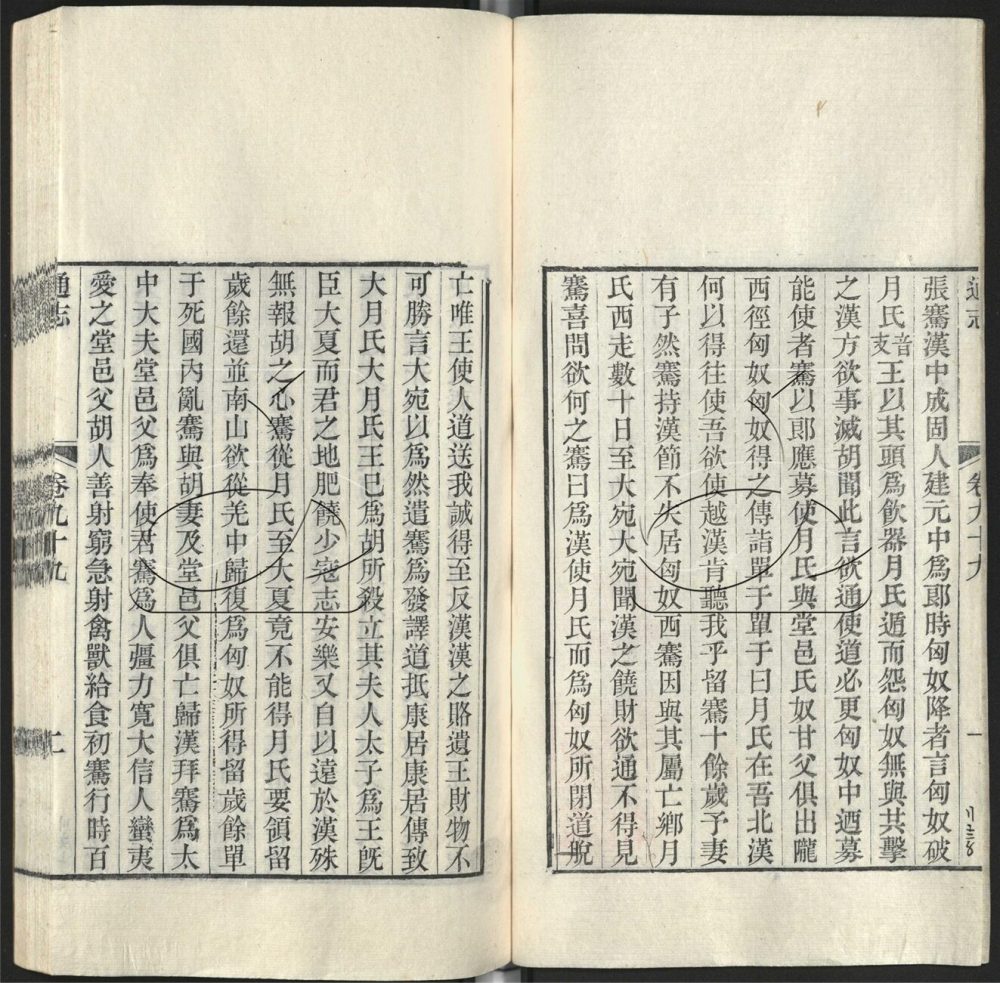 通志
卷九十九
一
張騫漢中成固人建元中爲郎時匈奴降者言匈奴破
月氏音支王以其頭爲飲器月氏遁而怨匈奴無與共擊
之漢方欲事滅胡聞此言欲通使道必更匈奴中迺募
能使者騫以郎應募使月氏與堂邑氏奴甘父俱出隴
西徑匈奴匈奴得之傳詣單于單于曰月氏在吾北漢
何以得往使吾欲使越漢肯聽我乎留騫十餘歲予妻
有子然騫持漢節不失居匈奴西騫因與其屬亡鄉月
氏西走數十日至大宛大宛聞漢之饒財欲通不得見
騫喜問欲何之騫曰爲漢使月氏而爲匈奴所閉道脫
亡唯王使人道送我誠得至反漢漢之賂遺王財物不
可勝言大宛以爲然遣騫爲發譯道抵康居康居傳致
大月氏大月氏王已爲胡所殺立其夫人太子爲王旣
臣大夏而君之地肥饒少寇志安樂又自以遠於漢殊
無報胡之心騫從月氏至大夏竟不能得月氏要領留
歲餘還並南山欲從羌中歸復爲匈奴所得留歲餘單
于死國內亂騫與胡妻及堂邑父俱亡歸漢拜騫爲太
中大夫堂邑父爲奉使君騫爲人彊力寬大信人蠻夷
愛之堂邑父胡人善射窮急射禽獸給食初騫行時百
通志
卷九十九
二